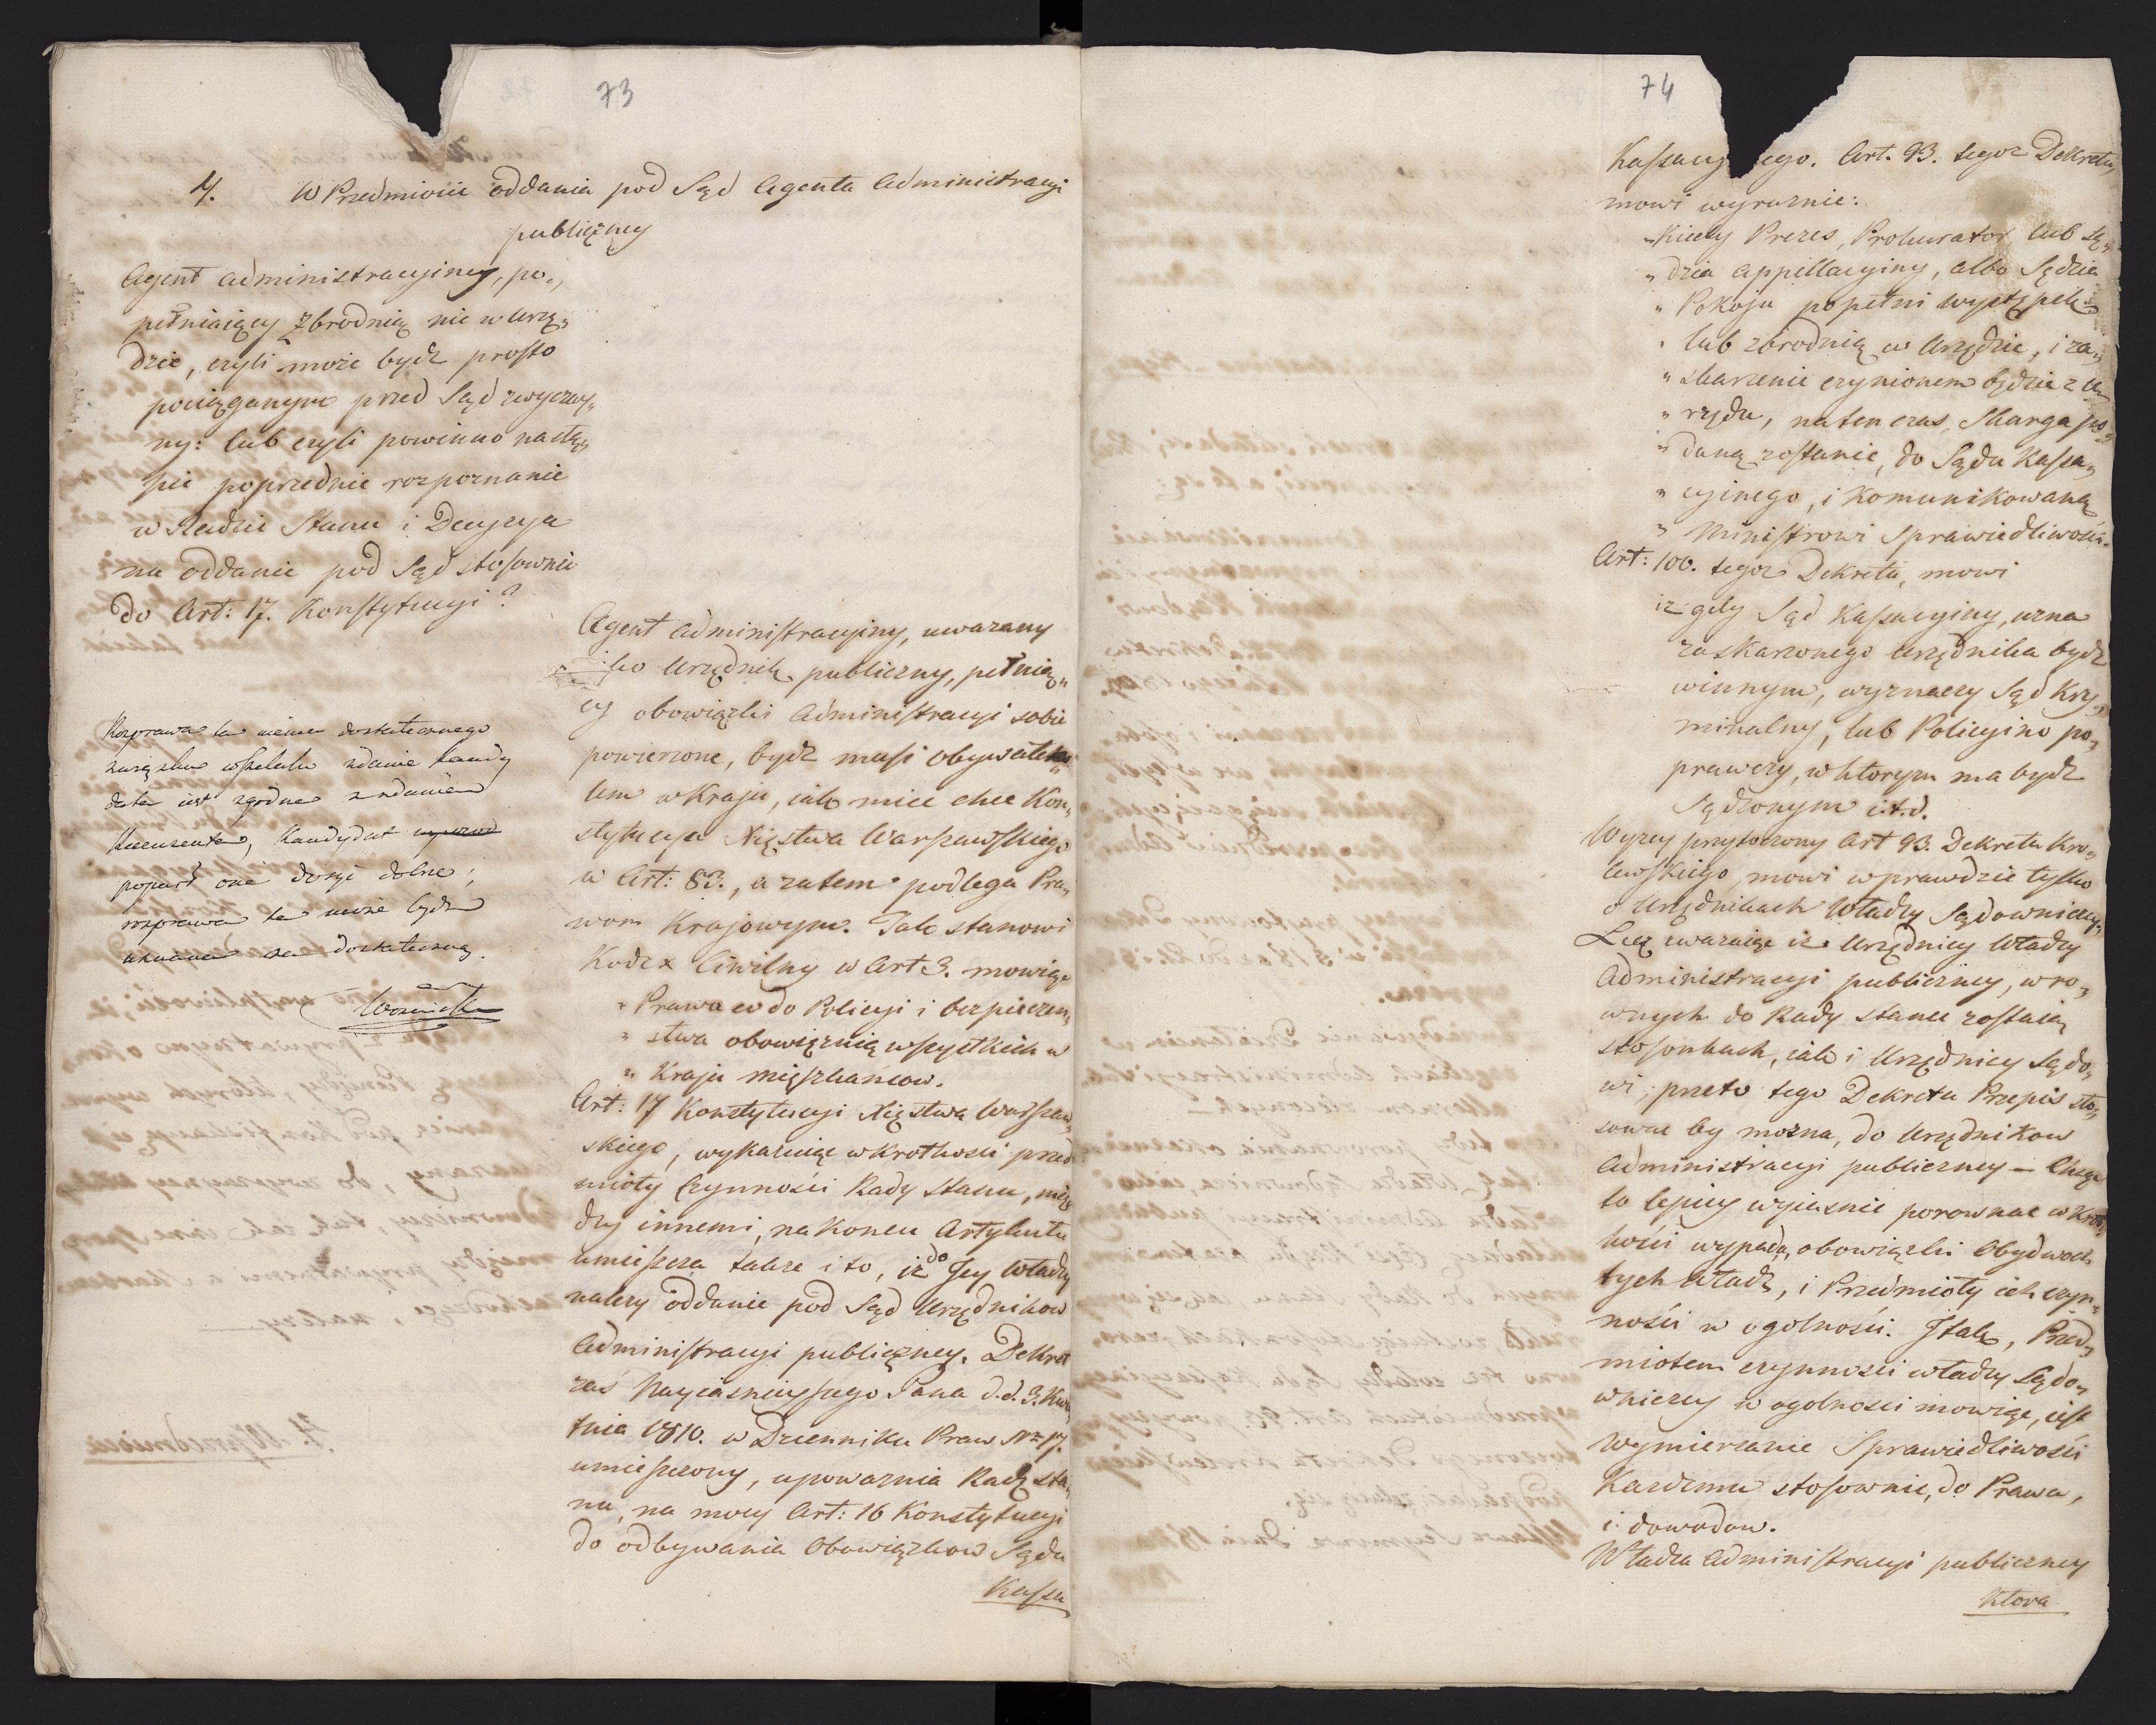 73
4. W Przedmiocie oddania pod Sąd Agenta Administracyi
publiczney
Agent administracyiney, po„
pełniaiący zbrodnią nie w Urzę„
dzie, czyli może bydź prosto
pociąganym przed Sąd zwyczay„
ny: lub czyli powinno nastą„
pić poprzednie rozpoznanie
w Radzie Stanu i Decyzya
na oddanie pod Sąd stosownie
do Art: 17. Konstytucyi?
Rozprawa ta niema dostatecznego
zdanie kandy
data iest zgodne z zdaniem
Recenzenta, Kandydat
poparł one dosyć dobrze,
rozprawa ta może bydź
uznana za dostateczną.
Agent administracyiny, uwazany
iako Urzędnik publiczny, pełnią„
cy obowiązki Administracyi sobie
powierzone, bydź musi Obywate„
lem w Kraju, iak miec chce Kon„
stytucya Xięstwa Warszawskiego
w Art: 83., a zatem podlega Pra„
wom Krajowym. Tak stanowi
Kodex Ciwilny w Art 3. mowiąc
„ Prawa co do Policyi i bezpieczen„
„ stwa obowięzuią wszystkich w
„ Kraju mięszkańcow.
Art: 17 Konstytucyi Xięstwa Warszaw„
skiego, wykazuiąc w krotkości przed
mioty Czynności Rady Stanu, mię
dzy innemi, na końcu Artykułu
umieszcza także i to, iż do Jey Władzy
należy oddanie pod Sąd Urzędnikow
Administracyi publiczney. Dekret
zaś Nayiasnieyszego Pana d.d. 3. Kwie„
tnia 1810. w Dzienniku Praw Nro 17.
umieszczony, upoważnia Radę Sta„
nu, na mocy Art: 16 Konstytucyi
do odbywania Obowiązkow Sądu
Kassa
74
Kassacy ego. Art. 93. tegoż Dekretu
mowi wyraznie:
„Kiedy Prezes, Prokurator lub Sę„
„ dzia Appellacyiny, albo Sędzia
„ Pokoju popełni występek
„ lub zbrodnią w Urzędzie, i za„
„ skarzenie czynionem będzie z U„
„ rzędu, na ten czas, Skarga po„
„ daną zostanie, do Sądu Kassa„
„ cyinego, i Komunikowaną
„ Ministrowi Sprawiedliwości.
Art: 100. tegoz Dekretu, mowi
iz gdy Sąd Kassacyiny, uzna
zaskarzonego Urzędnika bydź
winnym, wyznaczy Sąd Kry„
minalny, lub Policyino po„
prawczy, w ktorym ma bydź
Sądzonym i.t.d.
Wyzey przytoczony Art 93. Dekretu Kro„
lewskiego mowi wprawdzie tylko
o Urzędnikach Władzy Sądowniczey,
Lecz zwazaiąc iz Urzędnicy Władzy
Administracyi publiczney, w ro„
wnych do Rady Stanu zostaią
stosonkach, iak i Urzędnicy Sądo„
wi; przeto tego Dekretu Przepis sto„
sowac by mozna, do Urzędnikow
Administracyi publiczney — Chcąc
to lepiey wyiasnic porownac w krot„
kości wypada, obowiązki Obydwoch
tych Władz, i Przedmioty ich czyn„
ności w ogolności. I tak, Przed„
miotem czynności władzy Sądo„
wniczey w ogolności mowiąc, iest
Wymierzanie Sprawiedliwości
Kazdemu stosownie, do Prawa,
i dowodow.
Władza Administracyi publiczney
Ktora